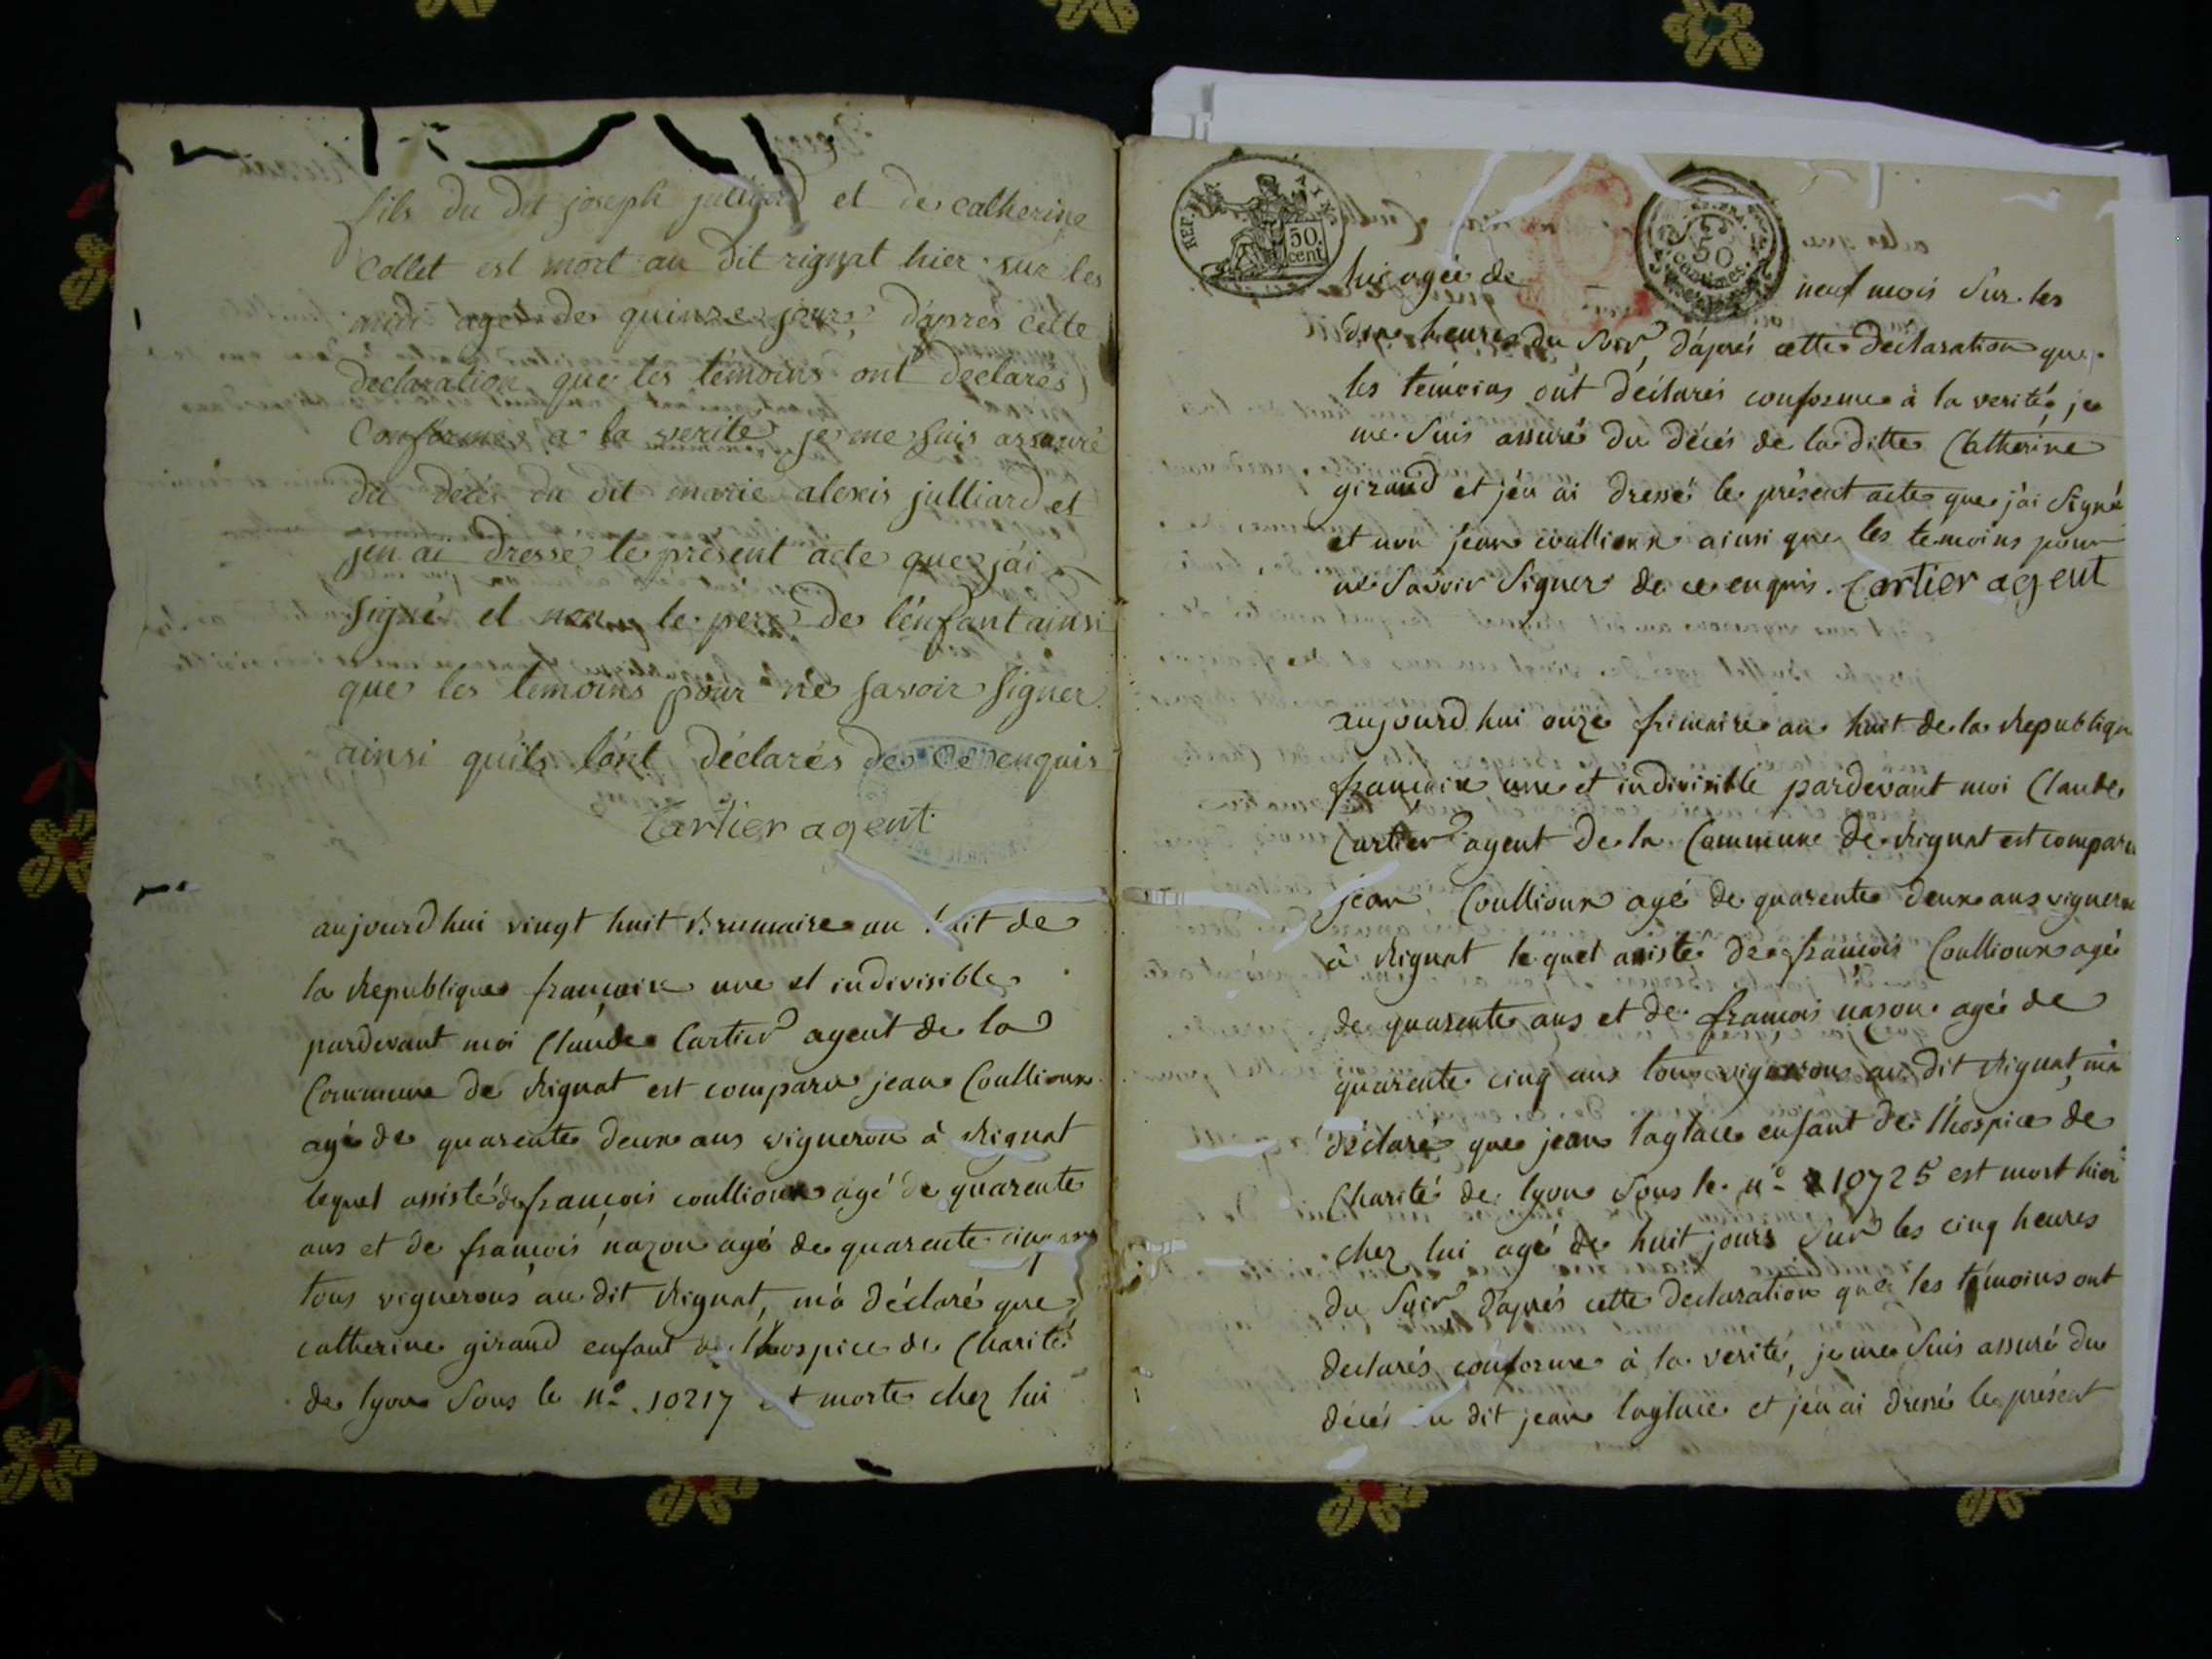 fils du dit joseph julliard et de catherine
Collet est mort au dit rignat hier sur les
midi agé de quinze jours, d'apres cette
declaration que les témoins ont declarés
Conforme a la verité je me suis assuré
du decés du dit marie alexis julliard et
jen ai dressé le présent acte que j'ai
signé et non le pere de l'énfant ainsi
que les temoins pour ne savoir signer
ainsi qu'ils l'ont déclarés de ce enquis
Cartier agent
aujourdhui vingt huit Brumaire an huit de
la Republique françoise une et indivisible
pardevant moi Claude Cartier agent de la
Commune de Rignat est comparu jean Coullioux
agé de quarente deux ans vigneron à Rignat
lequel assisté de françois coullioux agé de quarente
ans et de françois nazon agé de quarente cinq ans
tous vignerons au dit Rignat, m'a déclaré que
catherine giraud enfant de l'hospice de Charité
de lyon sous le n.º 10217 est morte chez lui
REP. FRA
50.
cent
50
centimes.
hier agée de neuf mois sur les
dix heures du soir, d'aprés cette déclaration que
les temoins ont déclarés conforme à la verité, je
me suis assuré du décés de la ditte Catherine
giraud et j'en ai dressé le présent acte que j'ai signé
et non jean coullioux ainsi que les temoins pour
ne savoir signer de ce enquis. Cartier agent
aujourdhui onze frimaire an huit de la Republique
françoise une et indivisible pardevant moi Claude
Cartier agent de la Commune de Rignat est comparu
jean Coullioux agé de quarente deux ans vigneron
à Rignat lequel assisté de françois Coullioux agé
de quarente ans et de françois nazon agé de
quarente cinq ans tous vignerons au dit Rignat, m'a
déclaré que jean laglace enfant de l'hospice de
Charité de lyon sous le n.º 10725 est mort hier
chez lui agé de huit jours sur les cinq heures
du soir d'aprés cette declaration que les témoins ont
declarés conforme à la verité, je me suis assuré du
décés du dit jean laglace et j'en ai dressé le présent